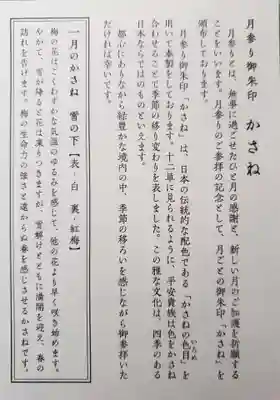 月参り御朱印 かさね
月参りとは、無事に過ごせたひと月の感謝と、新しい月のご加護を祈願する
ことをいいます。月参りのご参拝の記念として、月ごとの御朱印「かさね」を
頒布しております。
月参り御朱印「かさね」は、日本の伝統的な配色である「かさねの色目」を
いろめ
用いて奉製をしております。十二単に見られるように、平安貴族は色をかさね
合わせることで季節の移り変わりを表しました。この雅な文化は、四季のある
日本ならではのものといえます。
都心にありながら緑豊かな境内の中、季節の移ろいを感じながら御参拝いた
だければ幸いです。
一月のかさね 雪の下【表-白 裏-紅梅】
梅の花はごくわずかな気温のゆるみを感じて、他の花より早く咲き始めます。
やがて、雪が降ると花は凍りつきますが、雪解けとともに満開を迎え、春の
訪れを告げます。梅の生命力の強さと遠からぬ春を感じさせるかさねです。